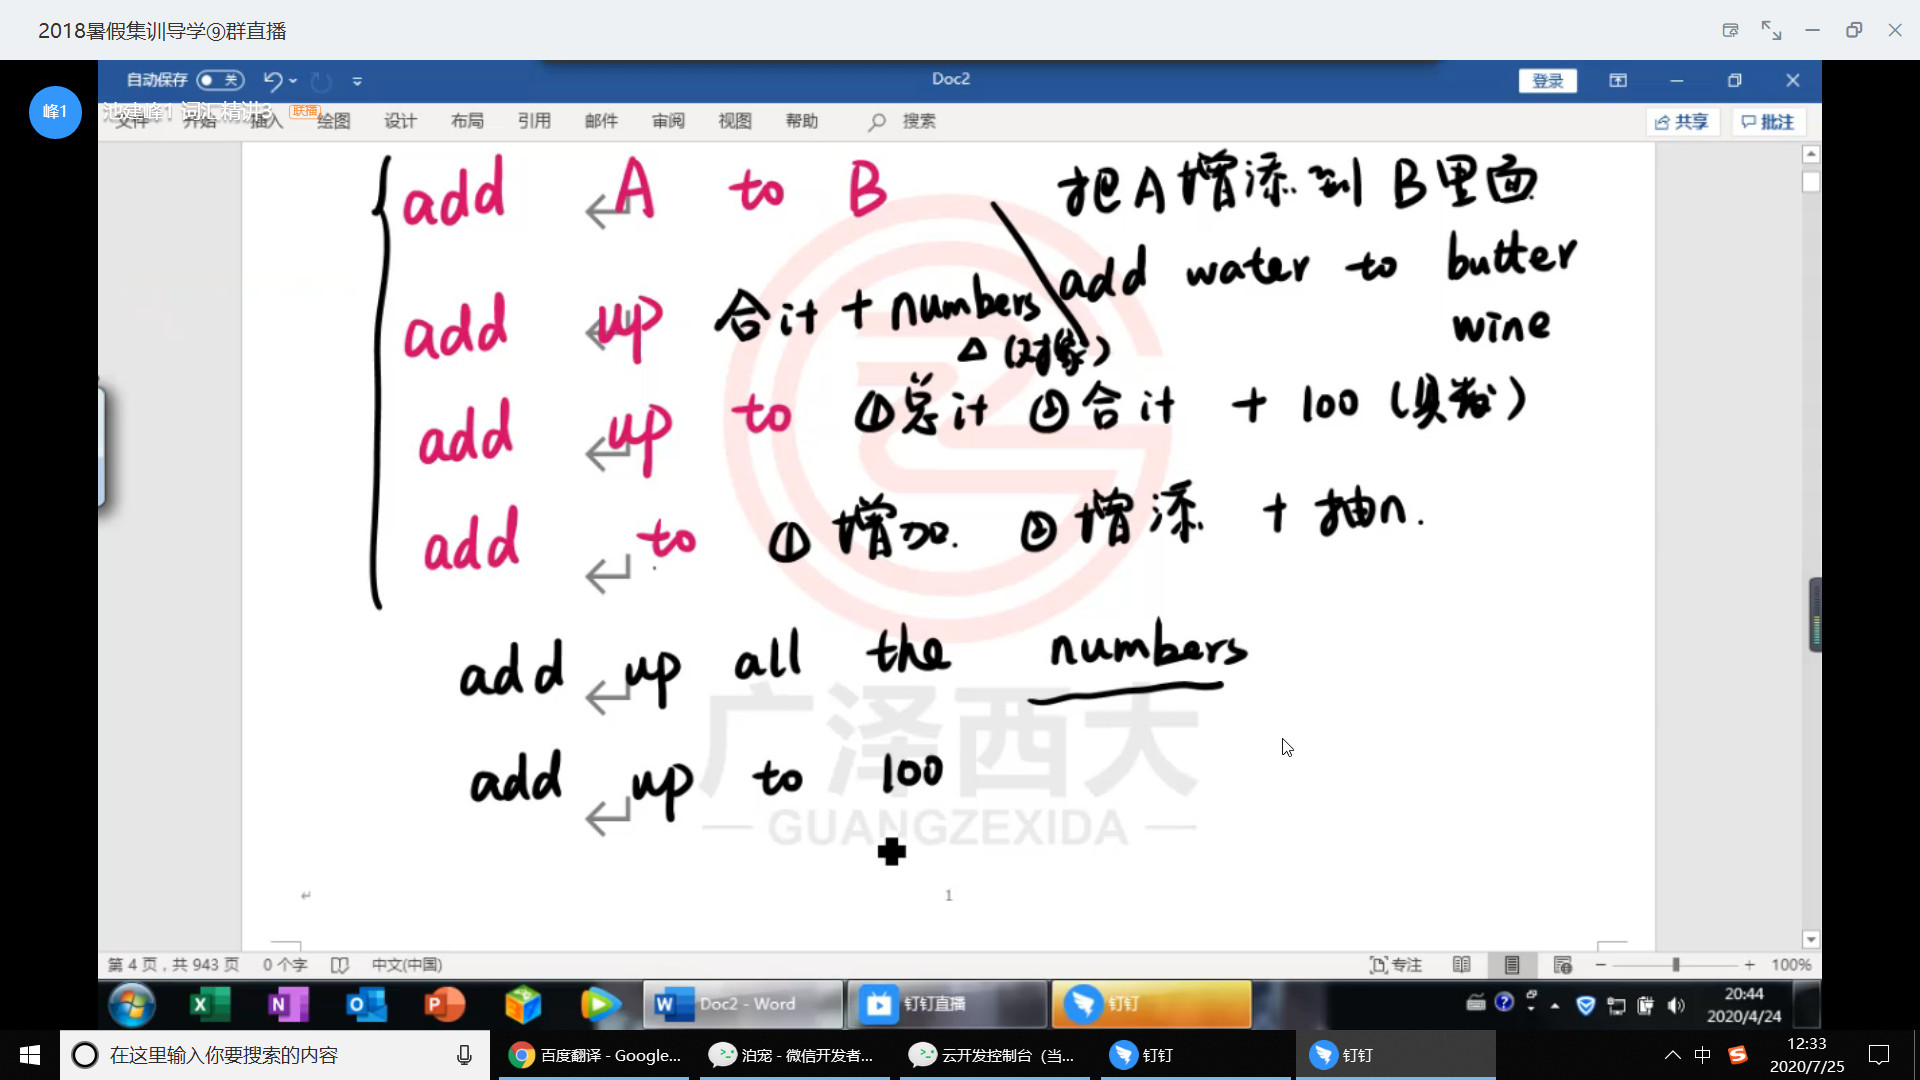 2018暑假集训导学⑨群直播
自动保存 关 Doc2 登录
峰1 池建峰1 词汇精讲3 联播
文件 开始 插入 绘图 设计 布局 引用 邮件 审阅 视图 帮助 搜索 共享 批注
add A to B 把A增添到B里面
add water to butter
wine
add up 合计 + numbers
△ (对象)
add up to ①总计 ②合计 + 100 (具数)
add to ①增加. ②增添 + 抽n.
add up all the numbers
add up to 100
广泽西大
— GUANGZEXIDA —
1
第 4 页，共 943 页 0 个字 中文(中国) 专注 100%
Doc2 - Word 钉钉直播 钉钉 20:44
2020/4/24
在这里输入你要搜索的内容 百度翻译 - Google... 泊宠 - 微信开发者... 云开发控制台（当... 钉钉 钉钉 中 12:33
2020/7/25